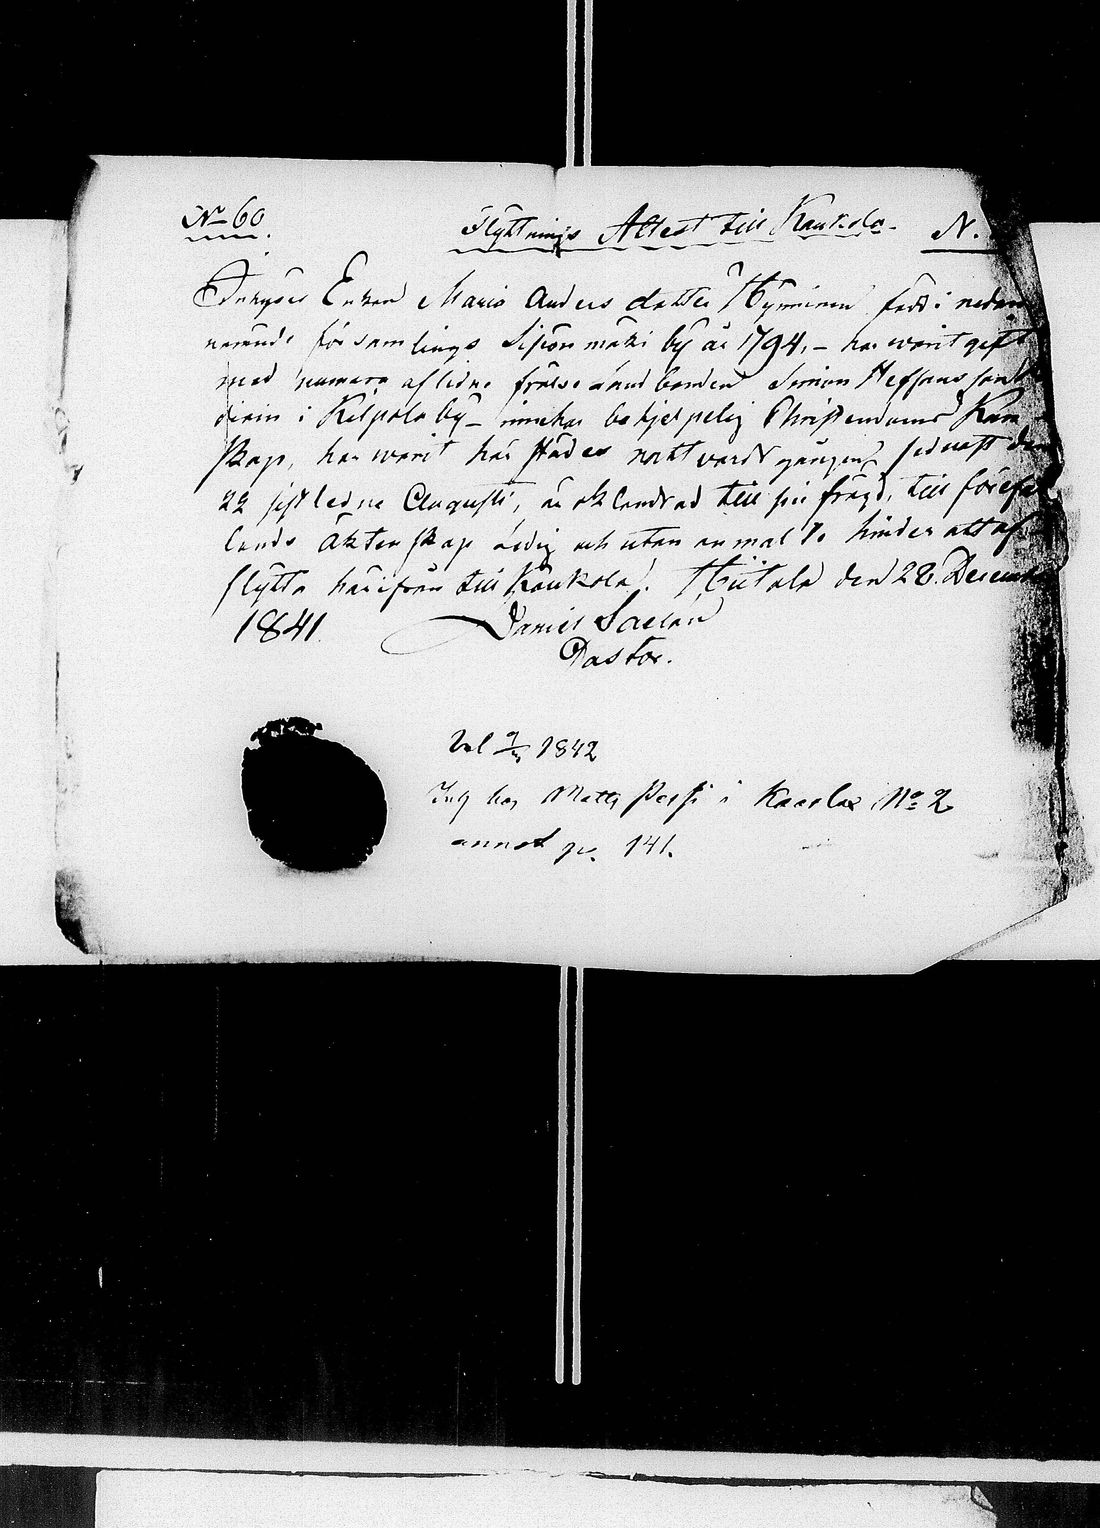 No 60 Flyttnings Attest till Kaukola. N.
Enkan Maria Anders dotter Hyminen född i nedan
nämnde församlings Siponmäki by år 1794, – har warit gift
med numera aflidne frälse landbonden Simon Heffonsson
i Kilpola by – innehar behjelpelig Christendoms Kun
skap, har warit här städes nattvardsgången sednast den
22 sistledne Augusti, är oklandrad till sin frägd, till förefal
lande äktenskap ledig och utan anmäldt hinder att af
flytta härifrån till Kaukola. Hiitola den 28 December
1841. Daniel Saelan
Pastor.
1842
hos Matts Pessi i Kaarlax No 2
annot p. 141.